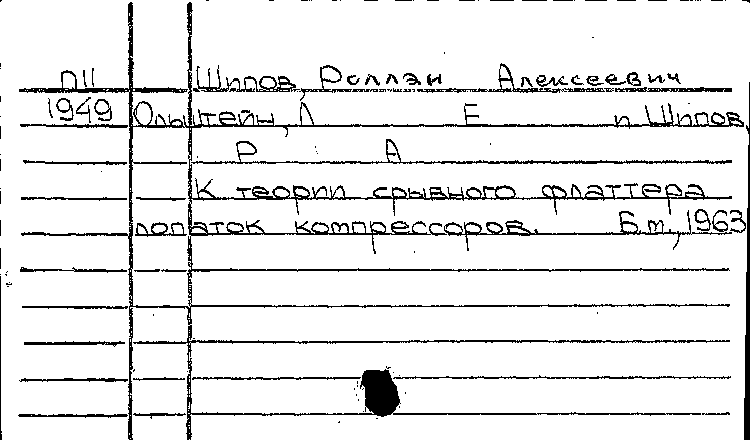 П11 Шипов, Роллэн Алексеевич
1949 Ольштейн, Л Е и Шипов,
Р А
К теории срывного флаттера
лопаток компрессоров. Б.м., 1963